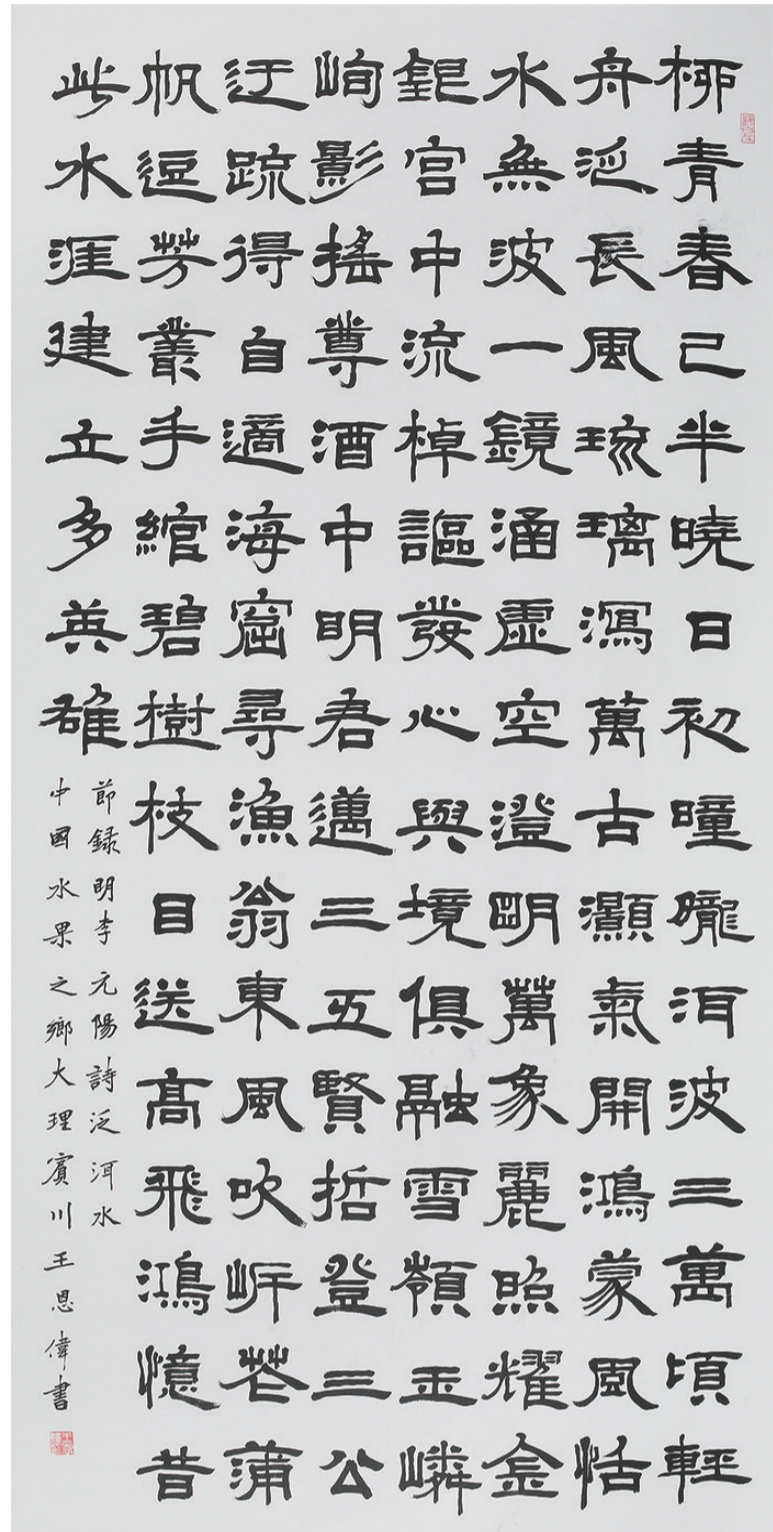 柳青春已半曉日初曈曨洱波三萬頃輕
舟泛長風琉璃瀉萬古灝氣開鴻蒙風恬
水無波一鏡涵虛空澄明萬象麗照耀金
銀宮中流棹謳發心與境俱融雪嶺玉嶙
峋影搖尊酒中明君邁三五賢哲登三公
迂疏得自適海窟尋漁翁東風吹岍芷蒲
帆逗芳叢手綰碧樹枝目送高飛鴻憶昔
此水涯建立多英雄
節錄明李元陽詩泛洱水
中國水果之鄉大理賓川王恩偉書